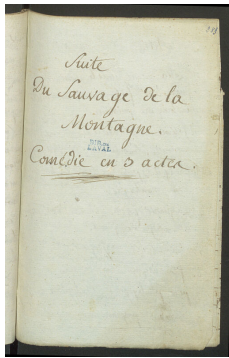 Suite
Du Sauvage de la
Montagne.
Comédie en 3 actes.